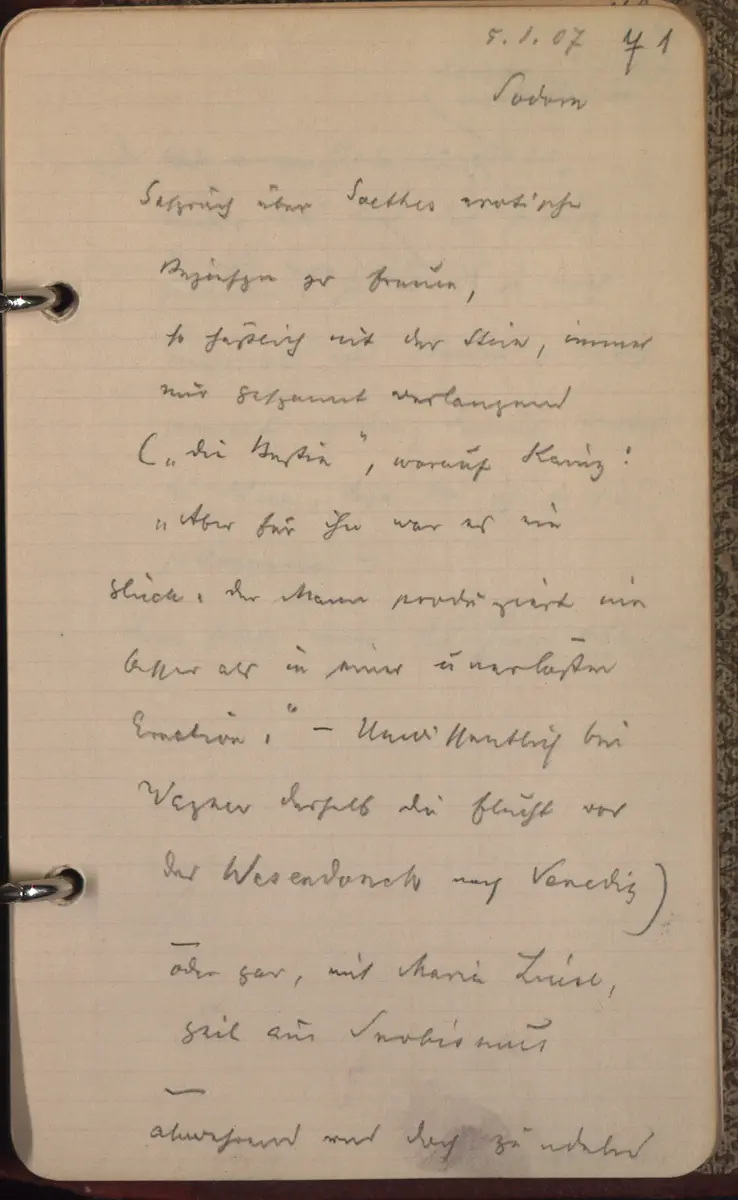 5.1.07 71
Sodom
Gespräch über Goethes erotische
Beziehgn zu Frauen,
so häßlich mit der Stein, immer
nur gespannt verlangend
(„die Bestie“, worauf Kainz:
„Aber für ihn war es ein
Glück. der Mann produziert nie
besser als in einer unerlösten
Erection.“ – Unwissentlich bei
Wagner deshalb die Flucht vor
der Wesendonck nach Venedig)
oder gar, mit Maria Luise,
geil aus Snobismus
abwehrend und doch zündelnd